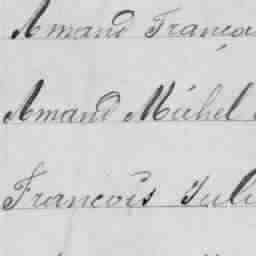 Amand Françoi
Amand Michel
François Juli